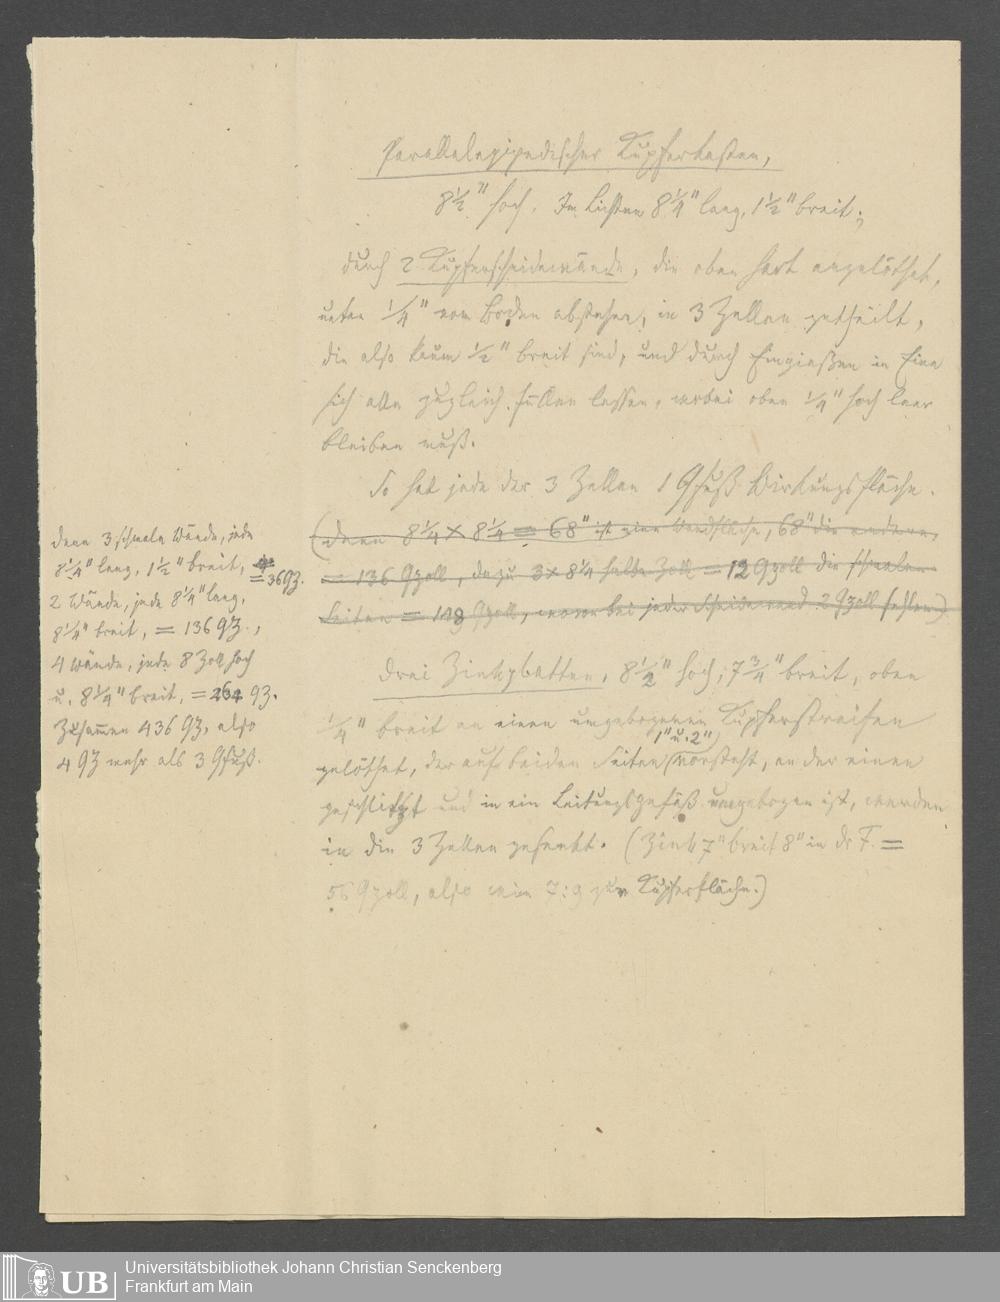 Parallelepipedischer Kupferkasten,
8 1/2" hoch. Im Lichten 8 1/4" lang, 1 1/2" breit;
durch 2 Kupferscheidewände, die oben hart angelöthet,
unten 1/4" vom Boden abstehen, in 3 Zellen getheilt,
die also kaum 1/2" breit sind, und durch Eingießen in Eine
sich alle zugleich füllen lassen, wobei oben 1/4" hoch leer
bleiben muß.
So hat jede der 3 Zellen 1 Qfuß Wirkungsfläche.
(denn 8 1/4 × 8 1/4 = 68" ist eine Wandfläche, 68" die andere,
= 136 Qzoll, dazu 3 × 8 1/4 halbe Zoll = 12 Qzoll die schmalen
Seiten = 148 Qzoll, wovon bei jeder Scheidewand 2 Qzoll fehlen)
denn 3 schmale Wände, jede
8 1/4" lang, 1 1/2" breit,
= 36 QZ.
2 Wände, jede 8 1/4" lang,
8 1/4" breit, = 136 QZ.,
4 Wände, jede 8 Zoll hoch
u. 8 1/4" breit, = 264 QZ.
Zusammen 436 QZ, also
4 QZ mehr als 3 Qfuß.
Drei Zinkplatten, 8 1/2" hoch, 7 3/4" breit, oben
1/4" breit an einen umgebogenen Kupferstreifen
1" u. 2"
gelöthet, der auf beiden Seiten vorsteht, an der einen
geschlitzt und in ein Leitungsgefäß umgebogen ist, werden
in die 3 Zellen gesenkt. (Zink 7" breit 8" in dr F. =
56 Qzoll, also wie 7:9 zur Kupferfläche.)
UB
Universitätsbibliothek Johann Christian Senckenberg
Frankfurt am Main